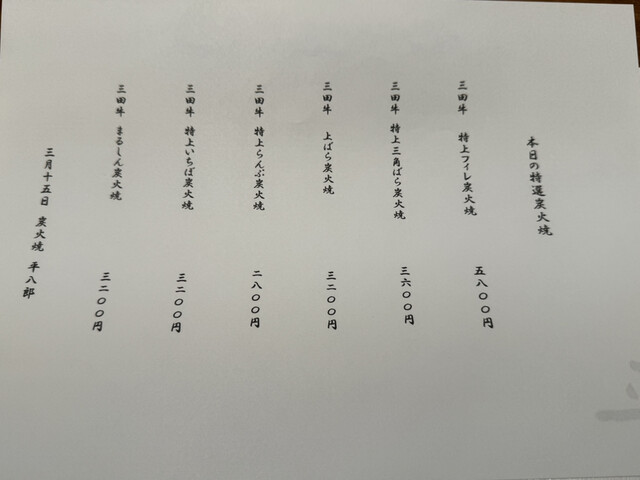 本日の特選炭火焼
三田牛 特上フィレ炭火焼 五八〇〇円
三田牛 特上三角ばら炭火焼 三六〇〇円
三田牛 上ばら炭火焼 三二〇〇円
三田牛 特上らんぷ炭火焼 二八〇〇円
三田牛 特上いちぼ炭火焼 三二〇〇円
三田牛 まるしん炭火焼 三二〇〇円
三月十五日 炭火焼 平八郎